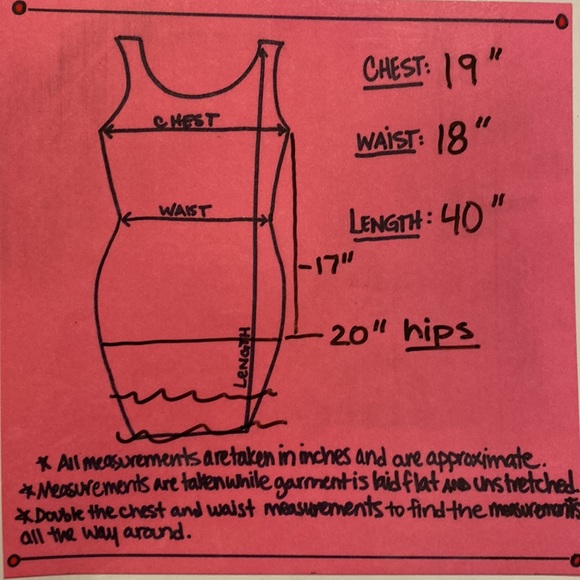 CHEST: 19"
CHEST
WAIST: 18"
WAIST
LENGTH: 40"
17"
20" hips
LENGTH
* All measurements are taken in inches and are approximate.
* Measurements are taken while garment is laid flat AND unstretched.
* Double the chest and waist measurements to find the measurements
all the way around.